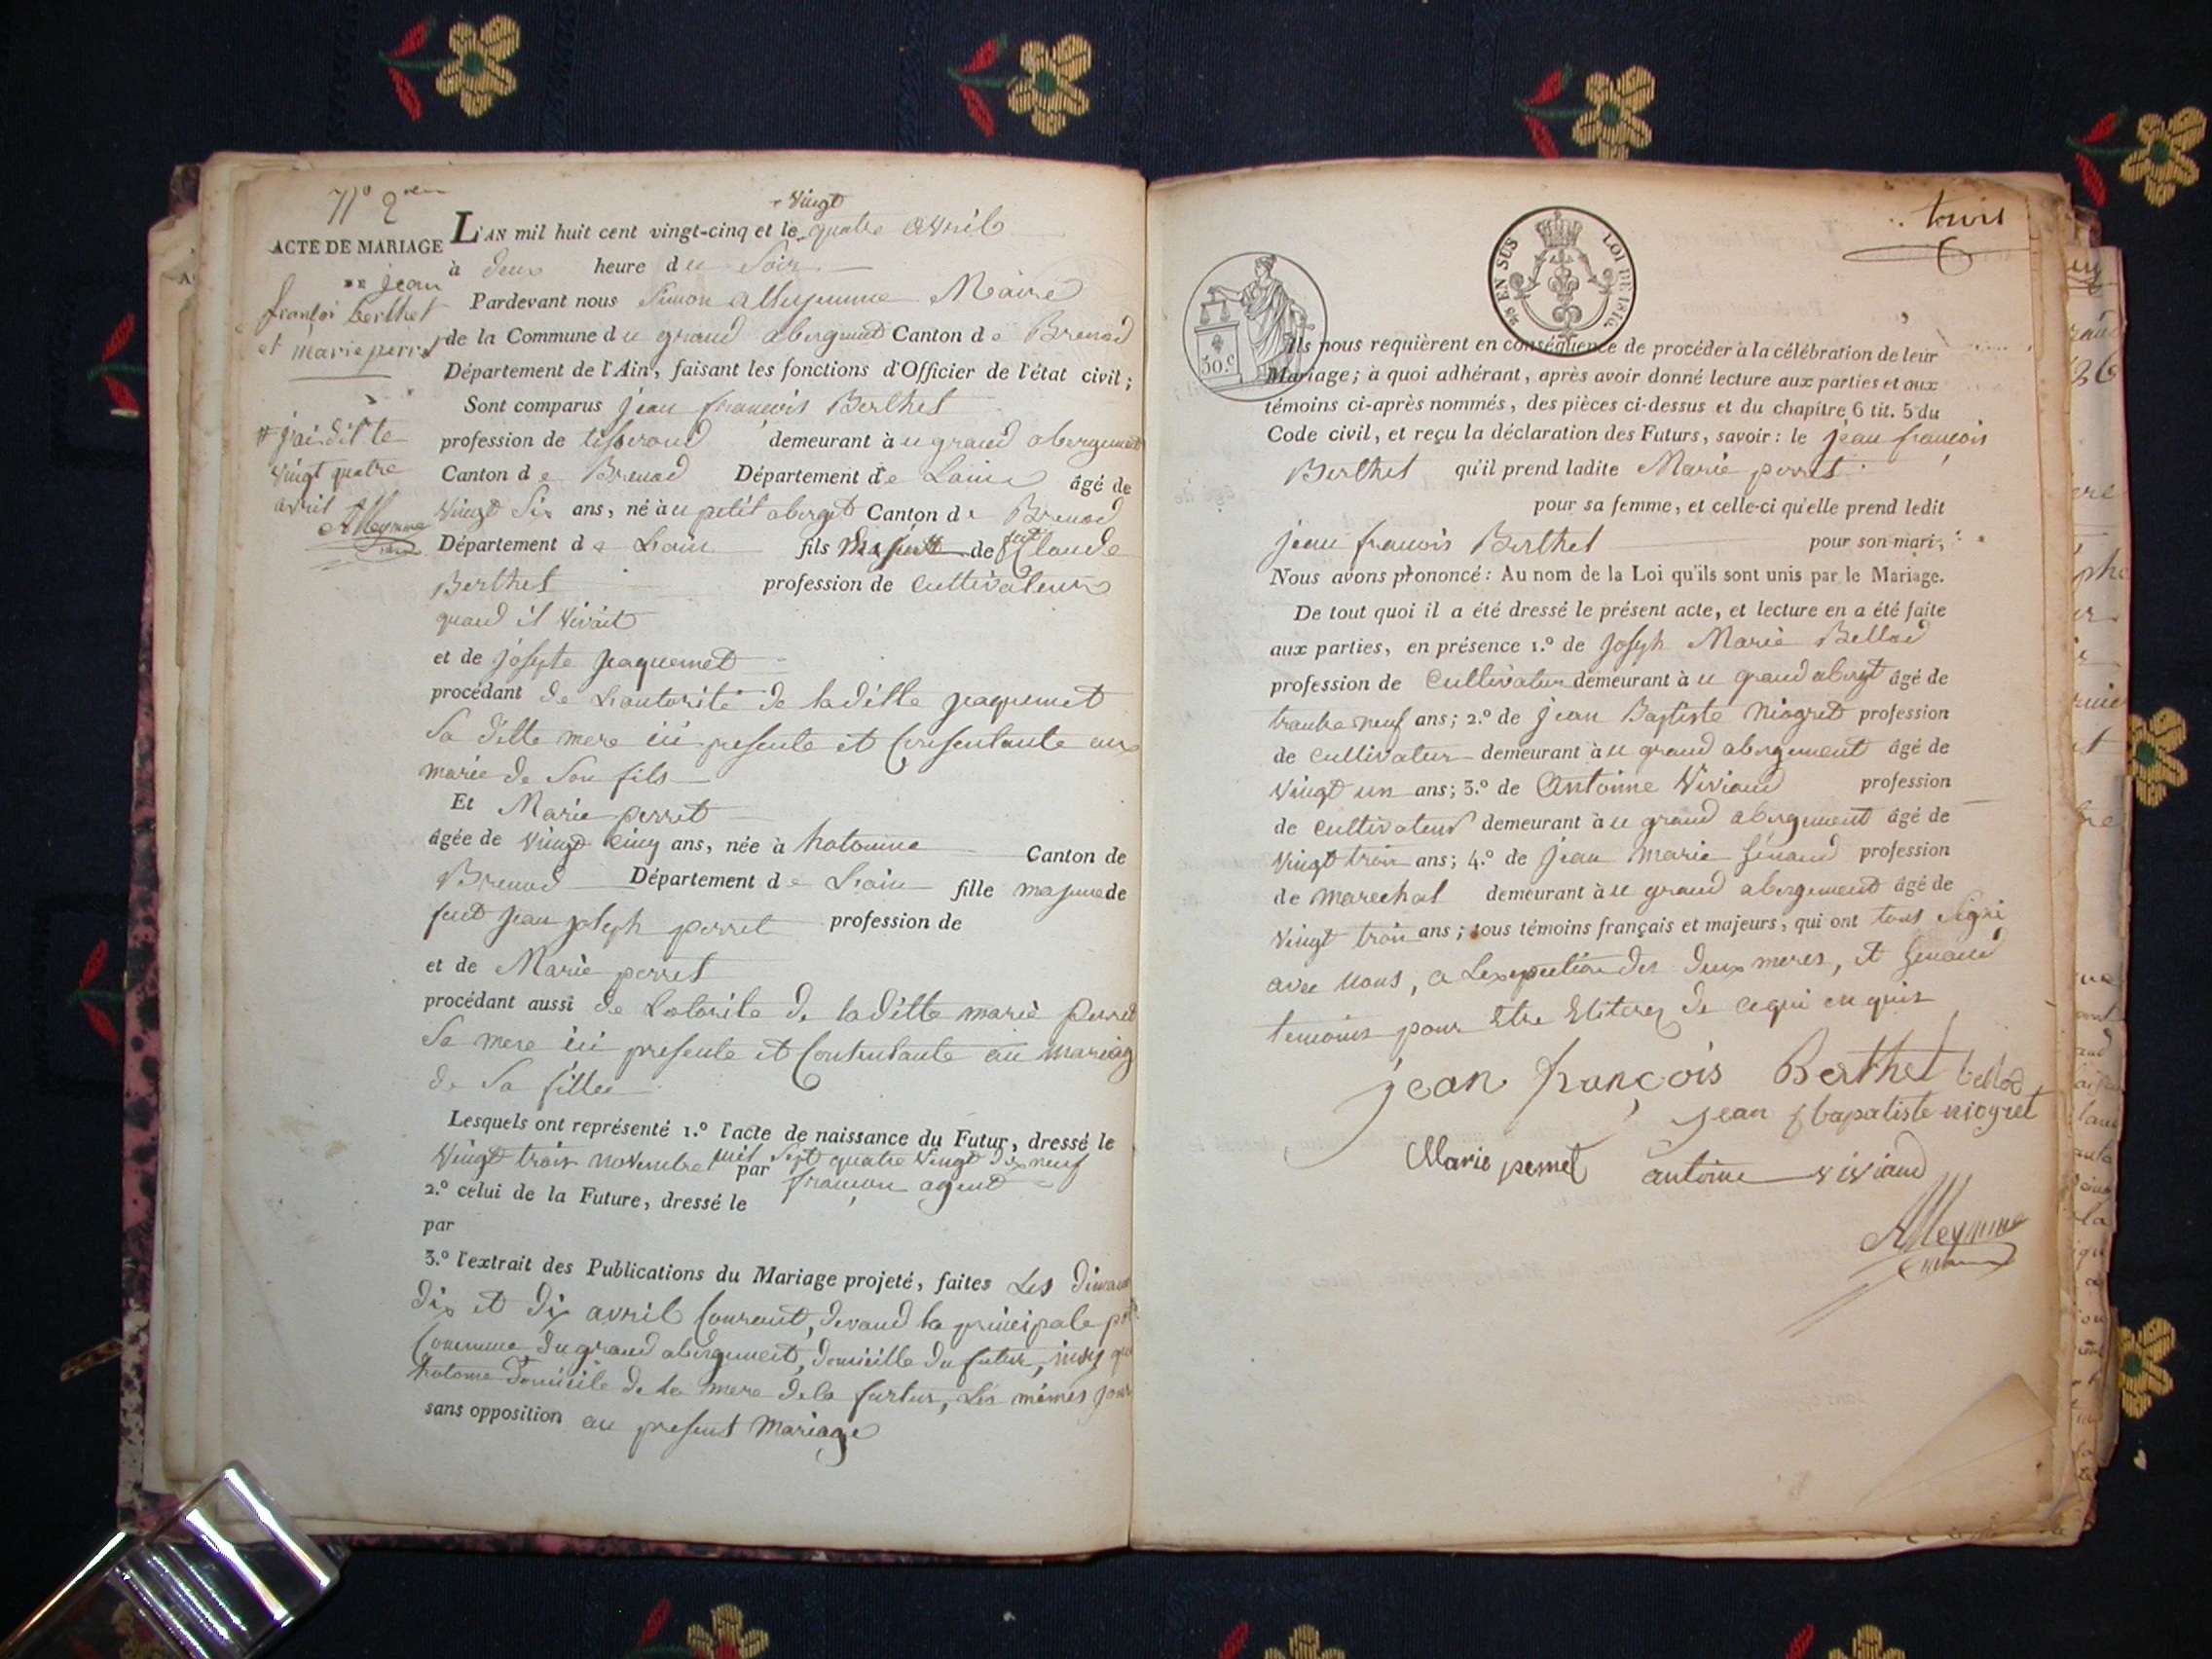 N° 2
vingt
L'AN mil huit cent vingt-cinq et le quatre avril
ACTE DE MARIAGE
à deux heure du Soir
DE jean
françoi berthet
et marie perret
Pardevant nous Simon alleyemme Maire
de la Commune du grand abergement Canton de Brenod
Département de l'Ain, faisant les fonctions d'Officier de l'état civil;
Sont comparus jean françois Berthet
# j'ai dit le
vingt quatre
avril Alleymme
profession de tisserand demeurant au grand abergement
Canton de Brenod Département de Lain âgé de
vingt Six ans, né au petit abergt Canton de Brenod
Département de Lain fils de fut Claude
Berthet profession de cultivateur
quand il vivait
et de josepte jaquemet
procédant de Lautorité de laditte jaquemet
Sa ditte mere ici presente et Consentante au
marie de Son fils
Et Marie perret
âgée de vingt cinq ans, née à hotonne Canton de
Brenod Département de Lain fille majeure de
fut jean joseph perret profession de
et de Marie perret
procédant aussi de Lotorité de laditte marie perret
Sa mere ici presente et Consentante au mariag
de Sa fille
Lesquels ont représenté 1.° l'acte de naissance du Futur, dressé le
vingt trois novembre mil Sept quatre vingt dix neuf
par françon agent
2.° celui de la Future, dressé le
par
3.° l'extrait des Publications du Mariage projeté, faites Les
dix et dix avril Courant, devand la principale
Commune du grand abergement, domicille du futur,
hotonne domicile de la mere de la furtur, Les mêmes jour
sans opposition au present Mariage
trois
EN SUS
LOI DE 1816.
50.c
Ils nous requièrent en conséquence de procéder à la célébration de leur
Mariage; à quoi adhérant, après avoir donné lecture aux parties et aux
témoins ci-après nommés, des pièces ci-dessus et du chapitre 6 tit. 5 du
Code civil, et reçu la déclaration des Futurs, savoir: le jean françois
Berthet qu'il prend ladite Marie perret
pour sa femme, et celle-ci qu'elle prend ledit
jean francois Berthet pour son mari,
Nous avons prononcé: Au nom de la Loi qu'ils sont unis par le Mariage.
De tout quoi il a été dressé le présent acte, et lecture en a été faite
aux parties, en présence 1.° de joseph Marie Bellod
profession de Cultivateur demeurant au grand abergt âgé de
trante neuf ans; 2.° de jean Baptiste Niogret profession
de cultivatur demeurant au grand abergement âgé de
vingt un ans; 3.° de Antoinne Viviand profession
de cultivateur demeurant au grand abergement âgé de
vingt troi ans; 4.° de jean marie Senand profession
de marechal demeurant au grand abergement âgé de
vingt troi ans; tous témoins français et majeurs, qui ont tous Signé
avec nous, a Lexeption des deux meres, et Senand
temoins pour être de ce qui
jean françois Berthet bellod
jean bapatiste niogret
Marie perret antoine viviand
Alleymme